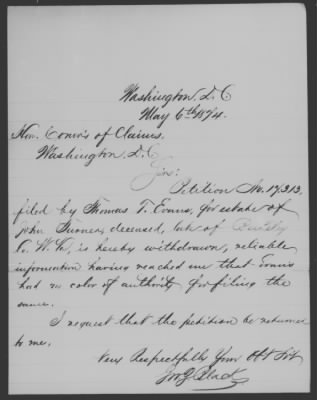 Washington, D.C.
May 6th 1874.
Hon. Com'rs of Claims.
Washington, D.C.
Sir:
Petition No. 17,313.
filed by Thomas T. Evans, for estate of
John Turner, deceased, late of
Co. W. Va, is hereby withdrawn, reliable
information having reached me that Evans
had no color of authority for filing the
same.
I request that the petition be returned
to me.
Very Respectfully Your Obt Svt